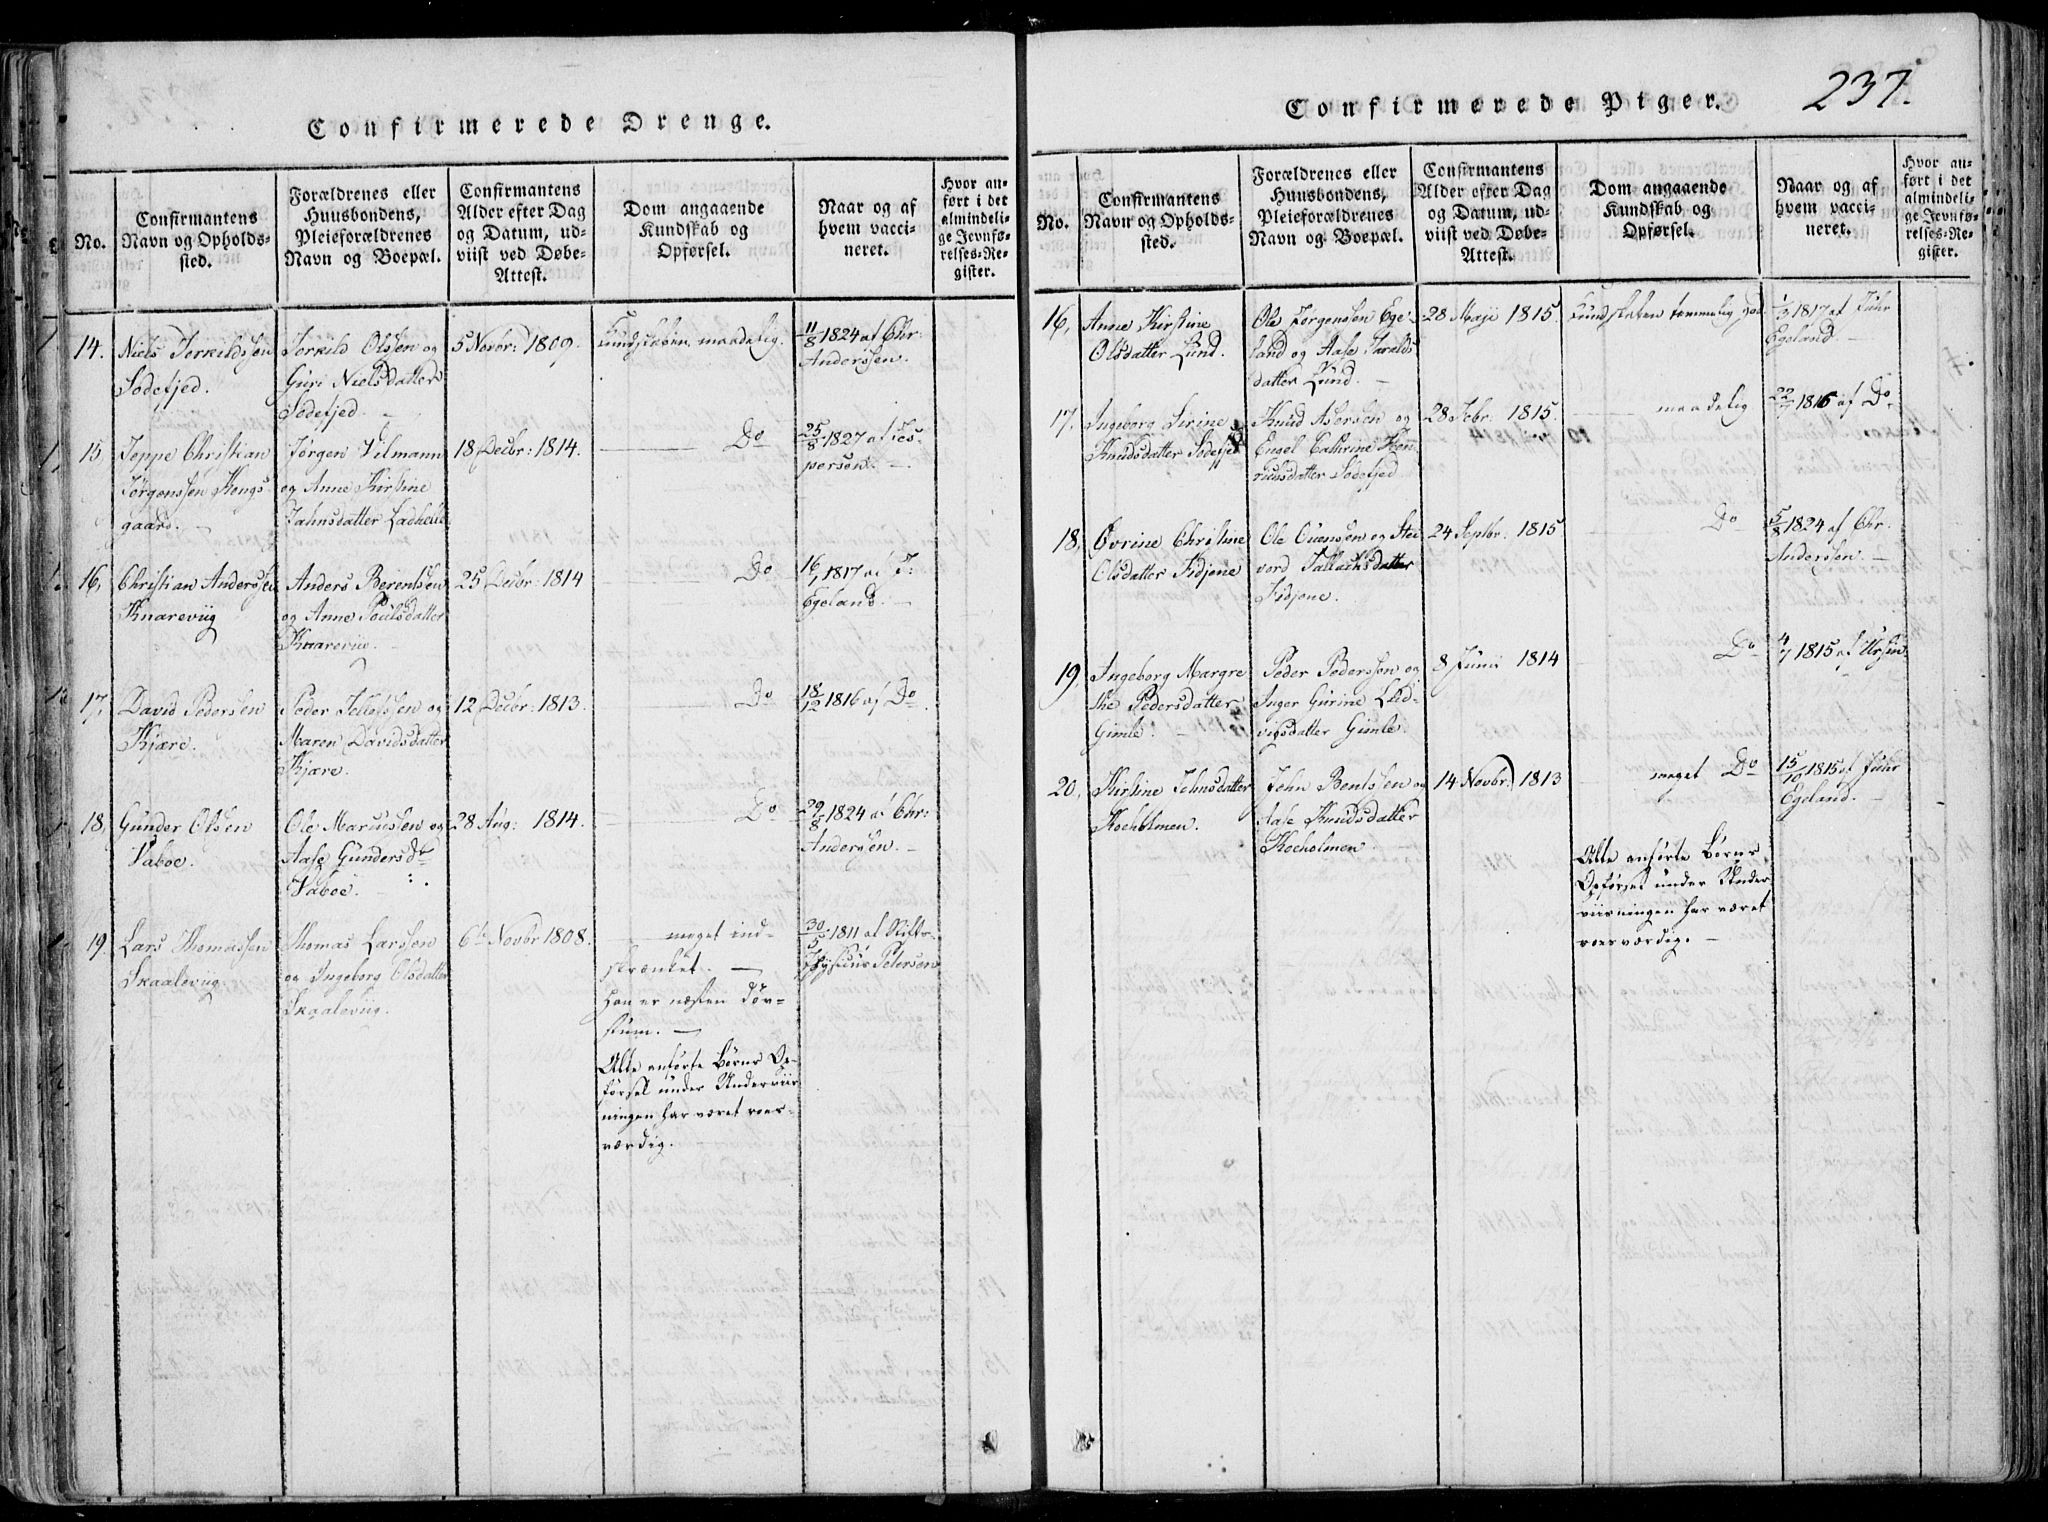 Confirmerede Drenge.
No.
Confirmantens
Navn og Opholds-
sted.
Forældrenes eller
Huusbondens,
Pleieforældrenes
Navn og Boepæl.
Confirmantens
Alder efter Dag
og Datum, ud-
viist ved Døbe-
Attest.
Dom angaaende
Kundskab og
Opførsel.
Naar og af
hvem vacci-
neret.
Hvor an-
ført i det
almindeli-
ge Jevnfø-
relses-Re-
gister.
14. Niels Terkildssen
Sødefjed.
Terkild Olssen og
Guri Nielsdatter
Sødefjed.
5 Novbr: 1809.
Kundskaben maadelig.
11/8 1824 af Chr.
Anderssen.
15. Jeppe Christian
Jørgenssen Kongs
gaard.
Jørgen Vilmann
og Anne Kirstine
Jahnsdatter
18 Decbr: 1814.
Do
25/8 1827 af Jes-
persen.
16. Christian Anderssen
Knareviig
Anders Berentssen
og Anne Poulsdatter
Knareviig.
25 Decbr: 1814
Do
16/1 1817 af J:
Egeland.
17. David Pedersen
Kjære.
Peder Tellefssen og
Maren Davidsdatter
Kjære.
12 Decbr: 1813.
Do
18/12 1816 af Do
18. Gunder Olsen
Vaboe.
Ole Mariussen og
Aase Gundersdr
Vaboe.
28 Aug: 1814.
Do
29/8 1824 af Chr:
Andersen.
19. Lars Thomassen
Skaaleviig.
Thomas Larssen
og Ingeborg Olsdatter
Skaaleviig.
6te Novbr 1808.
meget ind-
skrænket.
han er næsten døv-
stum.
Alle anførte Børns Op-
førsel under Underviis-
ningen har været roes-
værdig.
30/5 1811 af Stifts-
Physicus Petersen
Confirmerede Piger.
237.
No.
Confirmantens
Navn og Opholds-
sted.
Forældrenes eller
Huusbondens,
Pleieforældrenes
Navn og Boepæl.
Confirmantens
Alder efter Dag
og Datum, ud-
viist ved Døbe-
Attest.
Dom angaaende
Kundskab og
Opførsel.
Naar og af
hvem vacci-
neret.
Hvor an-
ført i det
almindeli-
ge Jevnfø-
relses-Re-
gister.
16. Anne Kirstine
Olsdatter Lund.
Ole Jørgenssen Ege-
land og Aase Taralds
datter Lund.
28 Maji 1815.
Kundskaben temmelig god
1/3 1817 af Fuhr
Egeland.
17. Ingeborg Sirine
Knudsdatter Sødefjed
Knud Asersen og
Engel Cathrine Hen
riksdatter Sødefjed
28 Febr. 1815.
maadelig
22/7 1816 af Do
18. Øvrine Christine
Olsdatter Fidjene
Ole Ouensen og Sie
vord Tallachsdatter
Fidjene.
24 Septbr. 1815
Do
5/8 1824 af Chr.
Anderssen.
19. Ingeborg Margre
the Pedersdatter
Gimle.
Peder Pederssen og
Inger Gurine Lud-
vigsdatter Gimle.
8 Junii 1814
Do
4/7 1815 af Ursin
20. Kirstine Johnsdatter
Koeholmen.
John Bentssen og
Aase Knudsdatter
Koeholmen
14 Novbr. 1813
meget Do
15/10 1815 af Fuhr
Egeland.
Alle anførte Børns
Opførsel under Under
viisningen har været
roesværdig.